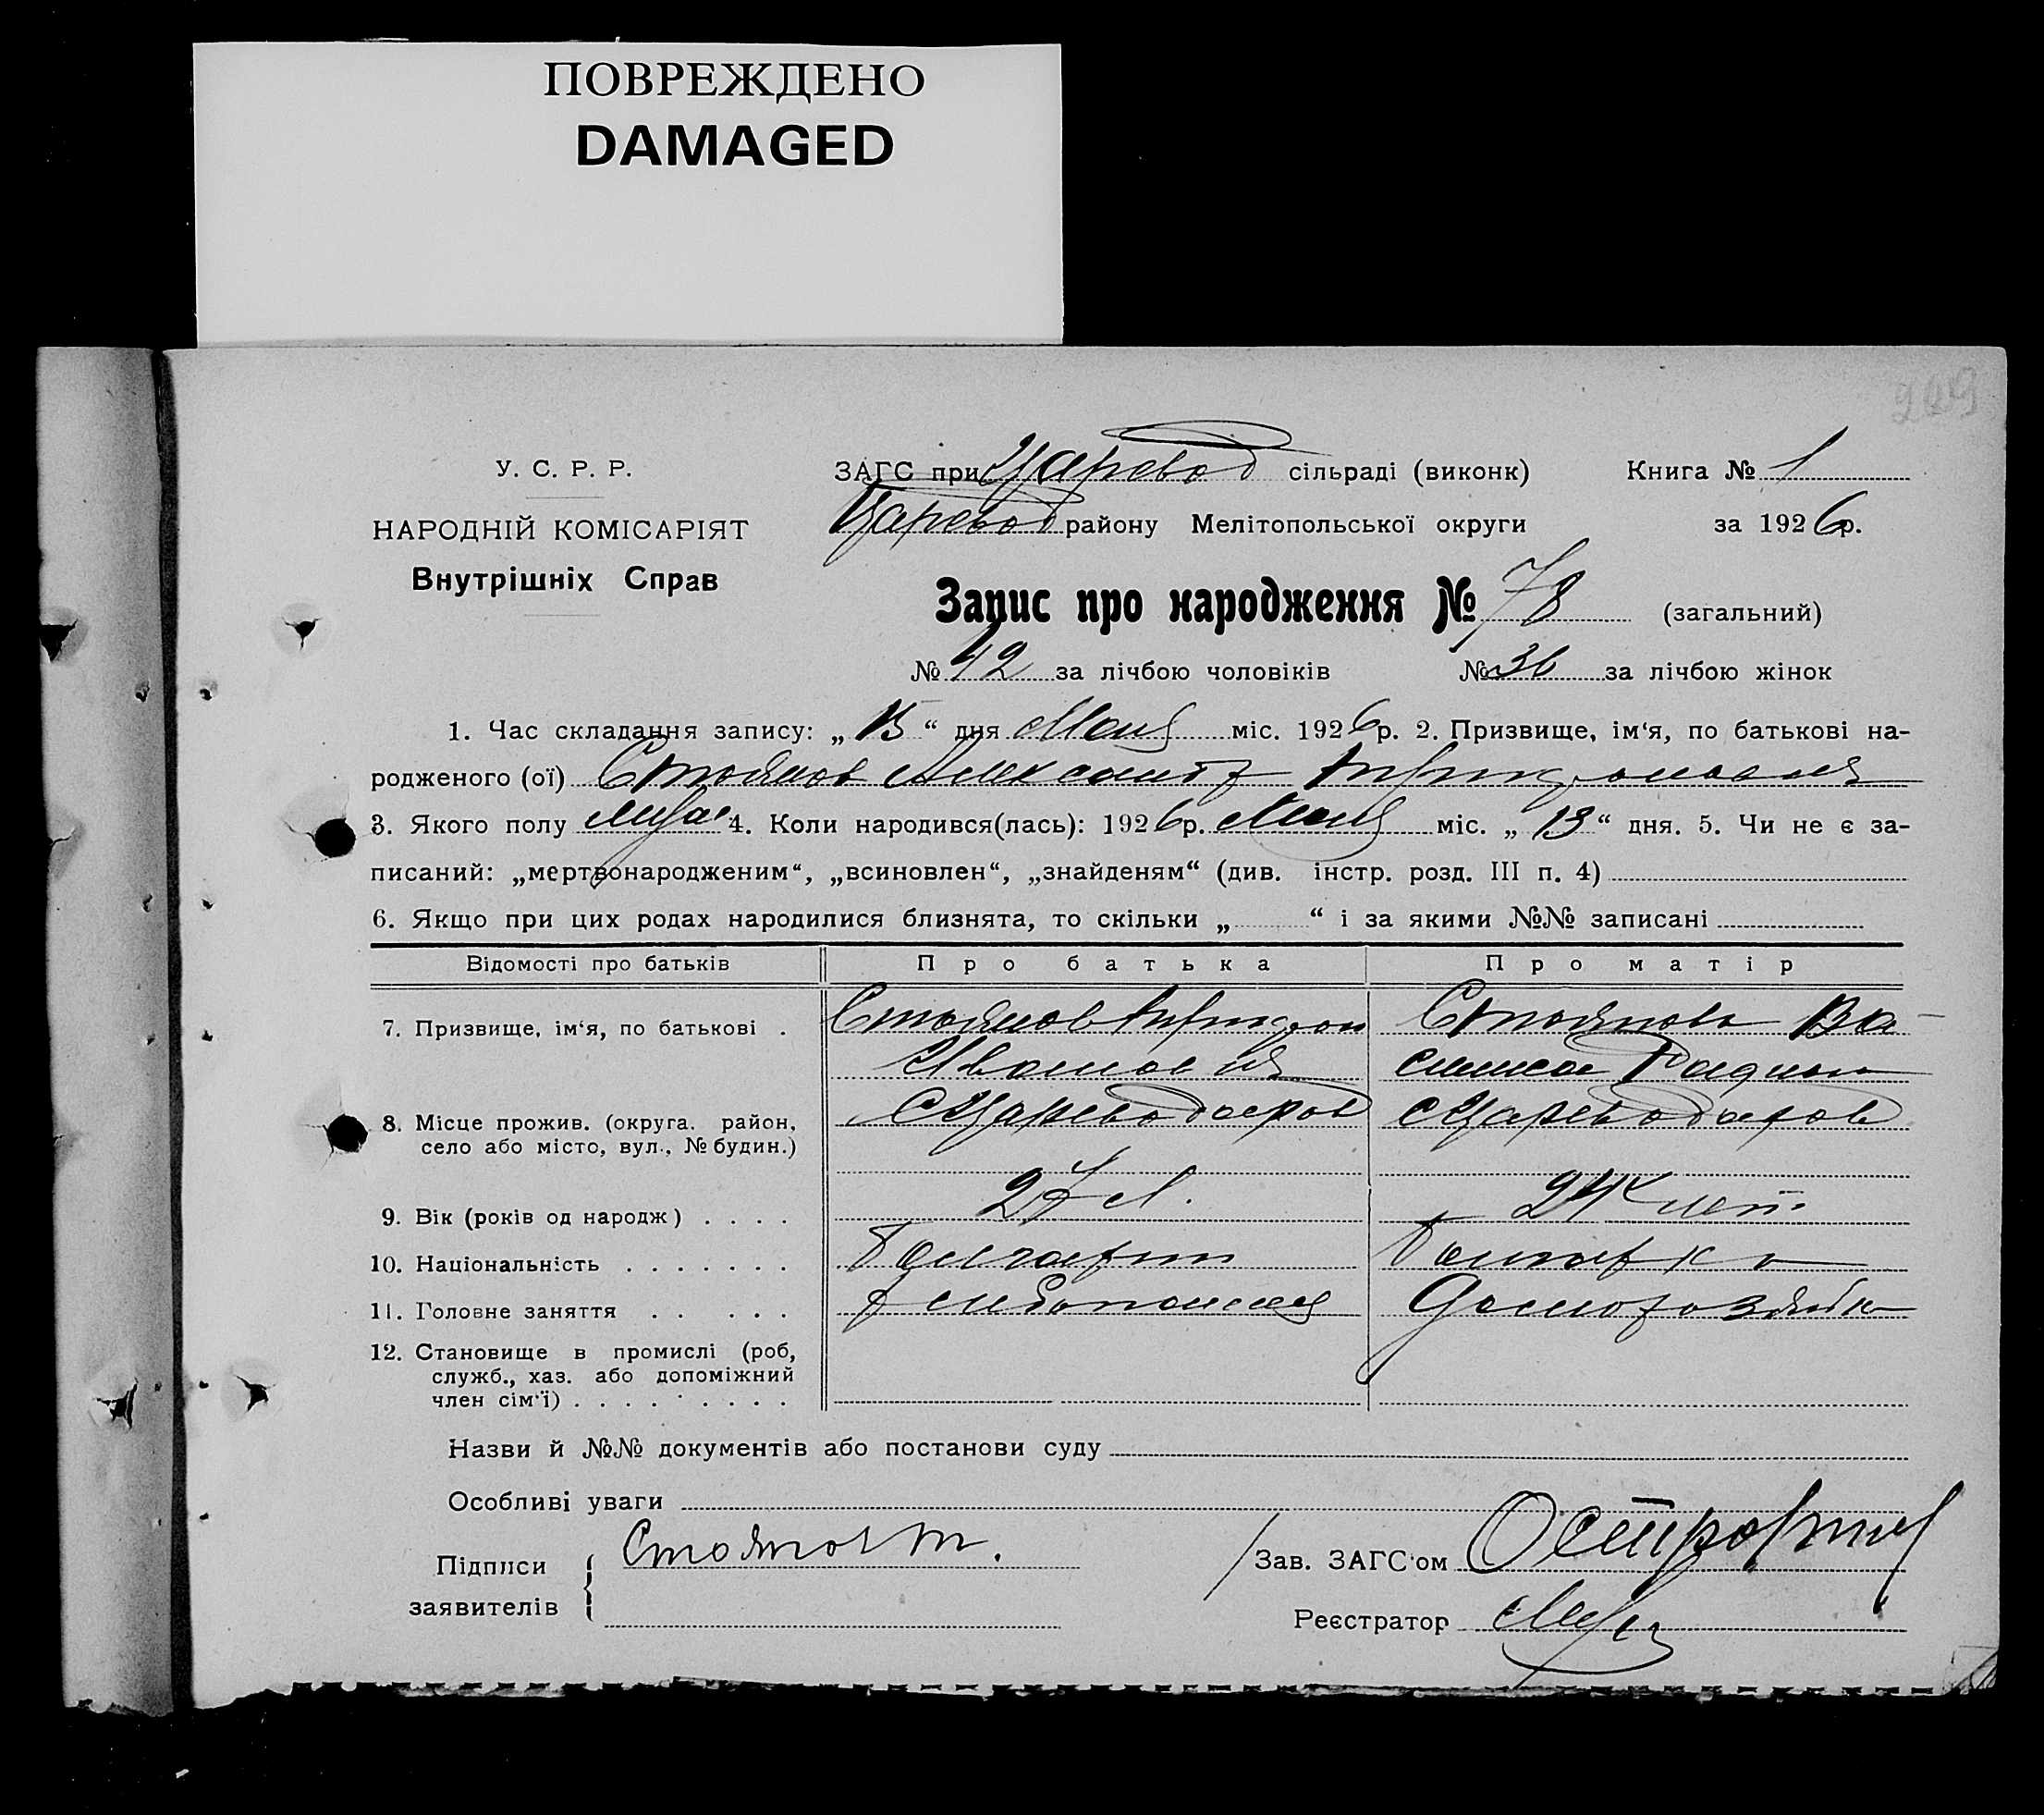 ПОВРЕЖДЕНО
DAMAGED
209
У. С. Р. Р.
НАРОДНІЙ КОМІСАРІЯТ
Внутрішніх Справ
ЗАГС при Царевод сільраді (виконк) Книга № 1
Царевод району Мелітопольської округи за 1926р.
Запис про народження № 78 (загальний)
№ 42 за лічбою чоловіків № 36 за лічбою жінок
1. Час складання запису: „ 15 “ дня Мая міс. 1926р. 2. Призвище, ім‘я, по батькові на-
родженого (ої) Стоянов Александр
3. Якого полу муж 4. Коли народився(лась): 1926р. Мая міс. „ 13 “ дня. 5. Чи не є за-
писаний: „мертвонародженим“, „всиновлен“, „знайденям“ (див. інстр. розд. III п. 4)
6. Якщо при цих родах народилися близнята, то скільки „ “ і за якими №№ записані
Відомості про батьків Про батька Про матір
7. Призвище, ім‘я, по батькові . Стоянов Стоянова Ва-
Иванович силиса Радион
8. Місце прожив. (округа. район, с Цареводаров с Цареводаров
село або місто, вул., № будин.)
9. Вік (років од народж) . . . . 27 л. 24 лет.
10. Національність . . . . . . . Болгарин Болгарка
11. Головне заняття . . . . . Хлебопашец Домохозяйка
12. Становище в промислі (роб,
служб., хаз. або допоміжний
член сім‘ї) . . . . . . . .
Назви й №№ документів або постанови суду
Особливі уваги
Підписи
заявителів
Зав. ЗАГС‘ом
Реєстратор